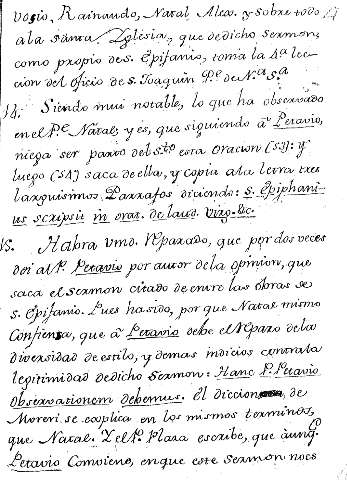 vosio, Rainaudo, Natal Alex. y sobre todo
a la Santa Yglesia, que de dicho Sermon,
como propio de S. Epifanio, toma la 4ª lec-
cion del oficio de S. Joaquin Pe. de Nª Sª
14. Siendo mui notable, lo que ha observado
en el Pe. Natal; y es, que siguiendo â Petavio,
niega ser parto del Sto. esta oracion (53): y
luego (54) saca de ella, y copia a la letra tres
larguisimos Parrafos diciendo: S. Epiphani-
us scripsit in orat. de laud. Virg. &c.
15. Habra vmd. reparado, que por dos veces
doi al P. Petavio por autor de la opinion, que
saca el Sermon citado de entre las obras de
S. Epifanio. Pues ha sido, por que Natal mismo
confiensa, que â Petavio debe el reparo de la
diversidad de estilo, y demas indicios contra la
legitimidad de dicho Sermon: Hanc P. Petavio
observationem debemus. El diccion de
Moreri se explica en los mismos terminos,
que Natal. Y el P. Plaza escribe, que aunq.
Petavio Comviene, en que este Sermon no es